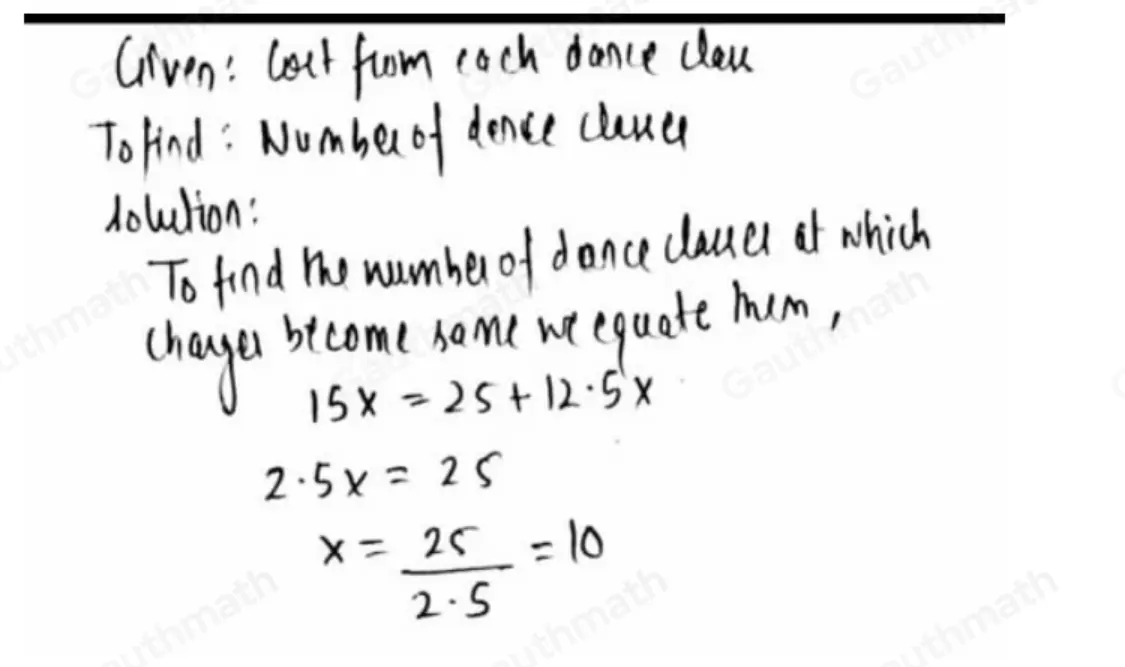 Given: Cost from each dance class
To find: Number of dance classes
Solution:
To find the number of dance classes at which
charges become same we equate them,
15x = 25 + 12.5x
2.5x = 25
x = 25/2.5 = 10
Gauthmath